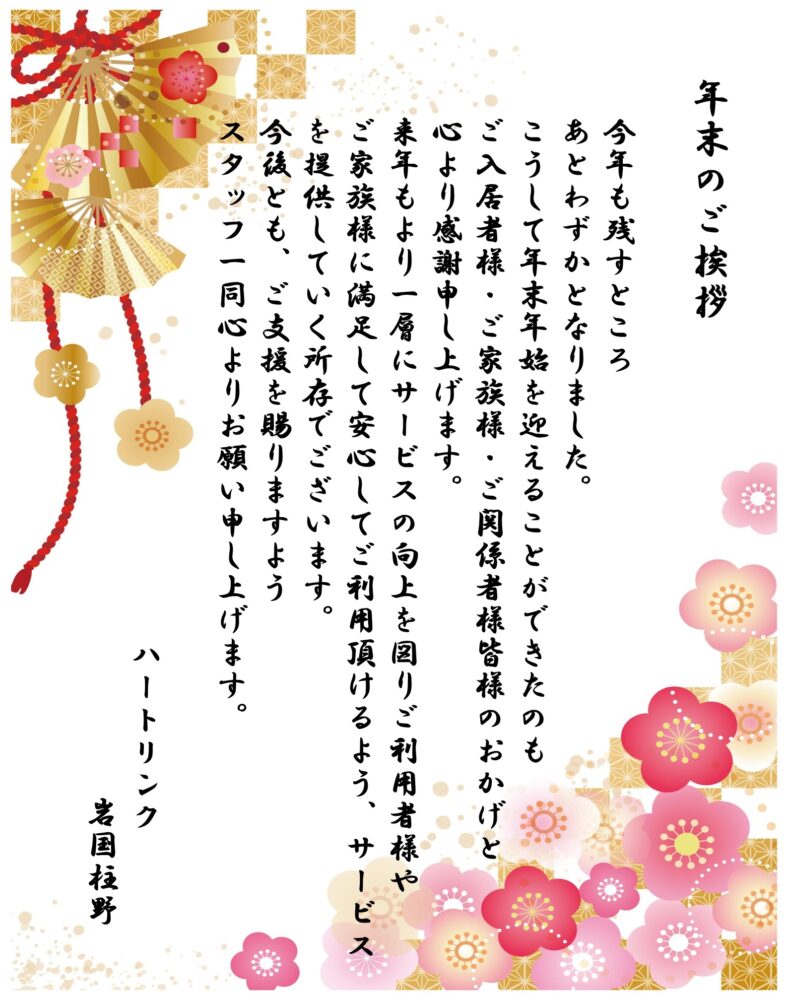 年末のご挨拶
今年も残すところ
あとわずかとなりました。
こうして年末年始を迎えることができたのも
ご入居者様・ご家族様・ご関係者様皆様のおかげと
心より感謝申し上げます。
来年もより一層にサービスの向上を図りご利用者様や
ご家族様に満足して安心してご利用頂けるよう、サービス
を提供していく所存でございます。
今後とも、ご支援を賜りますよう
スタッフ一同心よりお願い申し上げます。
ハートリンク
岩国柱野